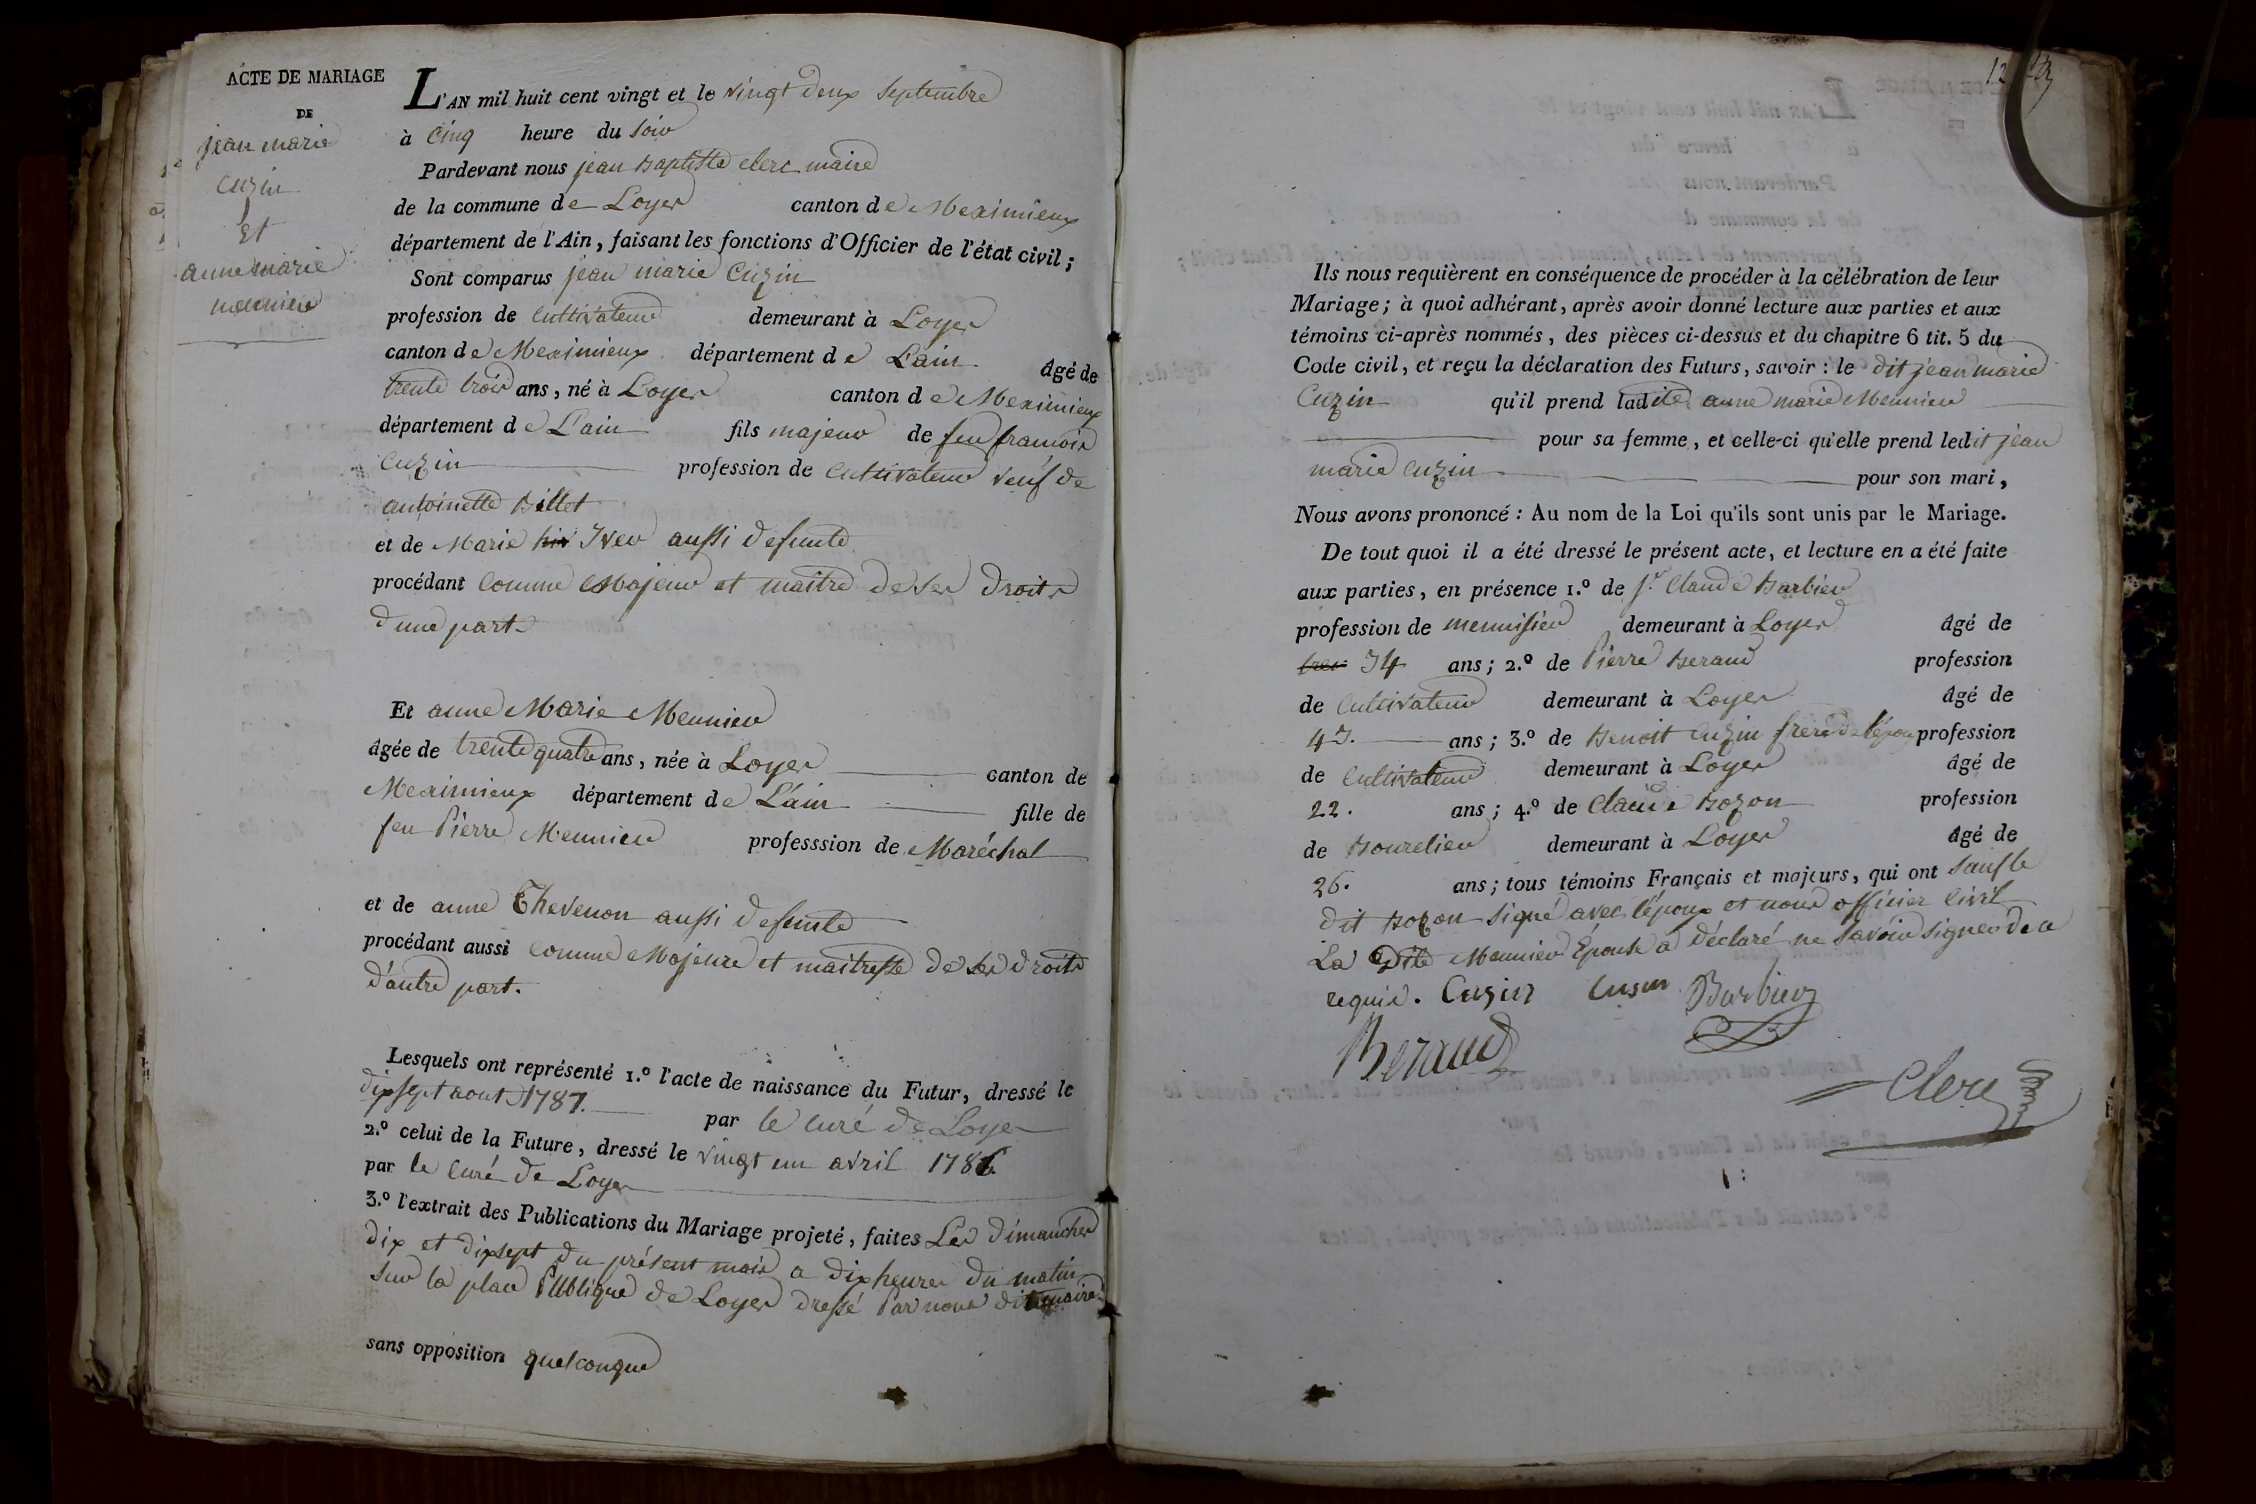 ACTE DE MARIAGE
DE
jean marie
Cuzin
Et
anne marie
meunier
L'AN mil huit cent vingt et le vingt deux septembre
à cinq heure du soir
Pardevant nous jean Baptiste clerc maire
de la commune de Loyes canton de Meximieux
département de l'Ain, faisant les fonctions d'Officier de l'état civil;
Sont comparus jean marie Cuzin
profession de cultivateur demeurant à Loyes
canton de Meximieux département de L'ain âgé de
trente trois ans, né à Loyes canton de Meximieux
département de L'ain fils majeur de feu francois
Cuzin profession de cultivateur veuf de
antoinette Billet
et de Marie Iver aussi defunte
procédant comme Majeur et maitre de ses droits
d'une part.
Et anne Marie Meunier
âgée de trente quatre ans, née à Loyes canton de
Meximieux département de L'ain fille de
feu Pierre Meunier professsion de Maréchal
et de anne Thevenon aussi defunte
procédant aussi comme Majeure et maitresse de ses droits
d'autre part.
Lesquels ont représenté 1.º l'acte de naissance du Futur, dressé le
dix sept aout 1787. par le curé de Loyes
2.º celui de la Future, dressé le vingt un avril 1786
par le curé de Loyes
3.º l'extrait des Publications du Mariage projeté, faites Les dimanches
dix et dixsept du présent mois a dix heures du matin
sur la place Publique de Loyes dressé Par nous dit maire
sans opposition quelconque
12
Ils nous requièrent en conséquence de procéder à la célébration de leur
Mariage; à quoi adhérant, après avoir donné lecture aux parties et aux
témoins ci-après nommés, des pièces ci-dessus et du chapitre 6 tit. 5 du
Code civil, et reçu la déclaration des Futurs, savoir: le dit jean marie
Cuzin qu'il prend ladite anne marie Meunier
pour sa femme, et celle-ci qu'elle prend ledit jean
marie cuzin pour son mari,
Nous avons prononcé: Au nom de la Loi qu'ils sont unis par le Mariage.
De tout quoi il a été dressé le présent acte, et lecture en a été faite
aux parties, en présence 1.º de Sr. Claude Barbier
profession de menuisier demeurant à Loyes âgé de
34 ans; 2.º de Pierre Beraud profession
de cultivateur demeurant à Loyes âgé de
43. ans; 3.º de Benoit Cuzin frere de l'époux profession
de cultivateur demeurant à Loyes âgé de
22. ans; 4.º de Claude Bozon profession
de Bourelier demeurant à Loyes âgé de
26. ans; tous témoins Français et majeurs, qui ont sauf le
dit Bozon signé avec l'époux et nous officier civil
La dite Meunier Épouse a déclaré ne savoir signer de ce
requis. Cuzin Cusin Barbier
Beraud
Clerc